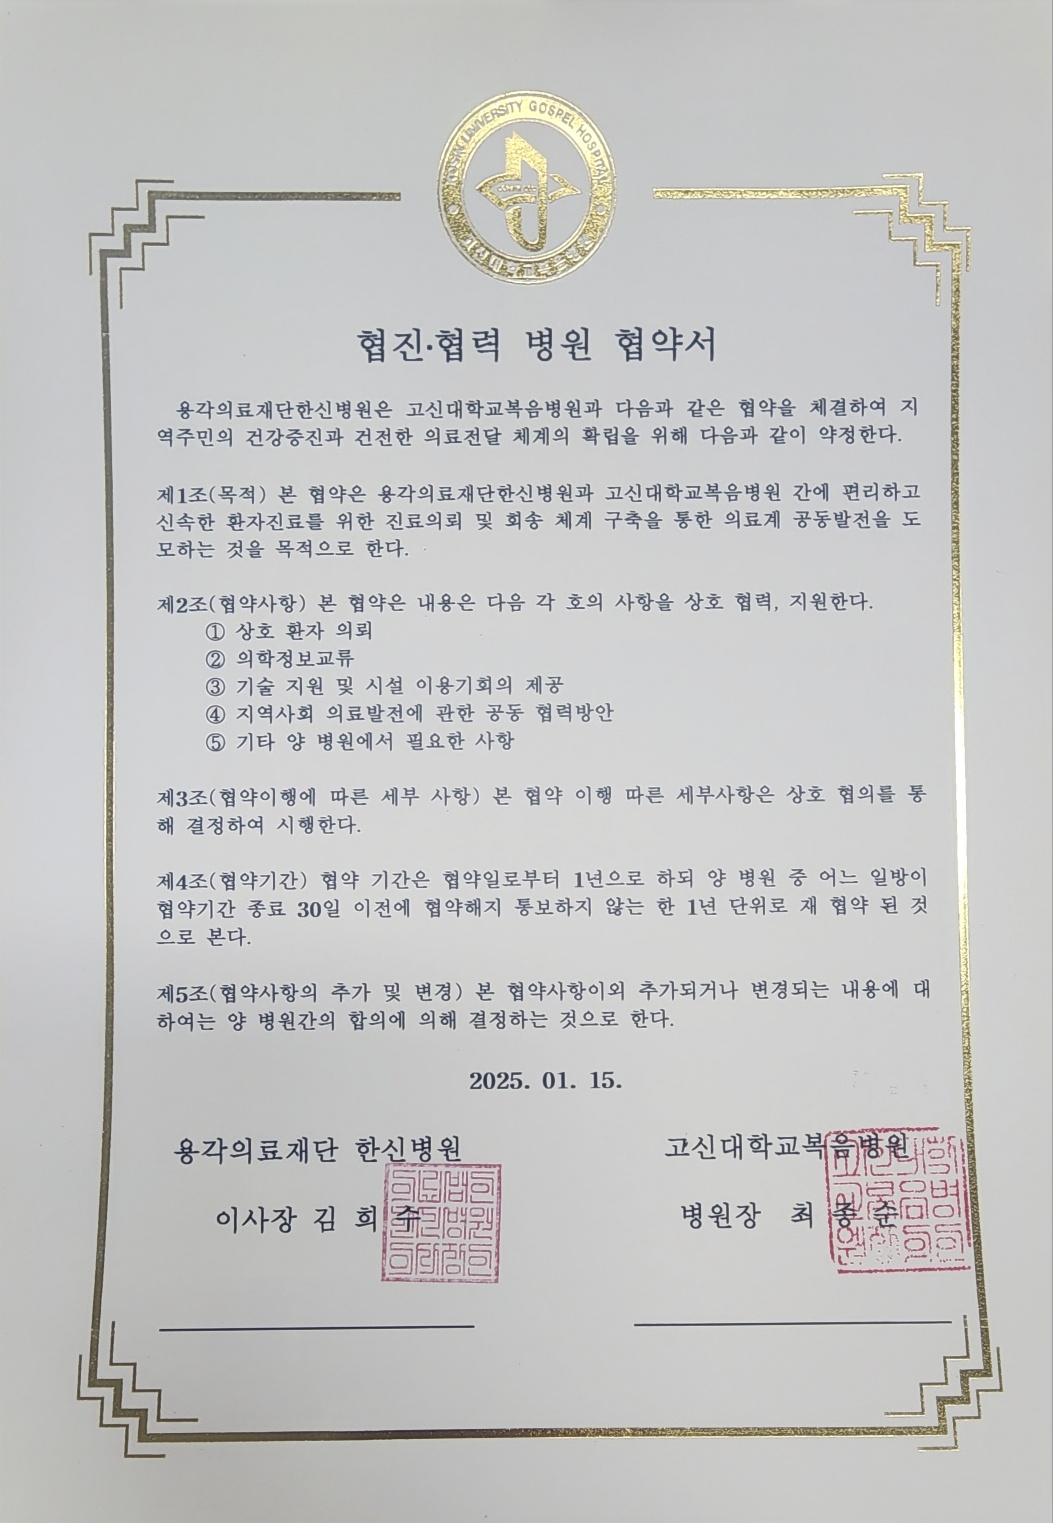 KOSIN UNIVERSITY GOSPEL HOSPITAL
고신대학교복음병원
협진·협력 병원 협약서
용각의료재단한신병원은 고신대학교복음병원과 다음과 같은 협약을 체결하여 지
역주민의 건강증진과 건전한 의료전달 체계의 확립을 위해 다음과 같이 약정한다.
제1조(목적) 본 협약은 용각의료재단한신병원과 고신대학교복음병원 간에 편리하고
신속한 환자진료를 위한 진료의뢰 및 회송 체계 구축을 통한 의료계 공동발전을 도
모하는 것을 목적으로 한다.
제2조(협약사항) 본 협약은 내용은 다음 각 호의 사항을 상호 협력, 지원한다.
① 상호 환자 의뢰
② 의학정보교류
③ 기술 지원 및 시설 이용기회의 제공
④ 지역사회 의료발전에 관한 공동 협력방안
⑤ 기타 양 병원에서 필요한 사항
제3조(협약이행에 따른 세부 사항) 본 협약 이행 따른 세부사항은 상호 협의를 통
해 결정하여 시행한다.
제4조(협약기간) 협약 기간은 협약일로부터 1년으로 하되 양 병원 중 어느 일방이
협약기간 종료 30일 이전에 협약해지 통보하지 않는 한 1년 단위로 재 협약 된 것
으로 본다.
제5조(협약사항의 추가 및 변경) 본 협약사항이외 추가되거나 변경되는 내용에 대
하여는 양 병원간의 합의에 의해 결정하는 것으로 한다.
2025. 01. 15.
용각의료재단 한신병원
고신대학교복음병원
이사장 김 희 수
병원장 최 종 순